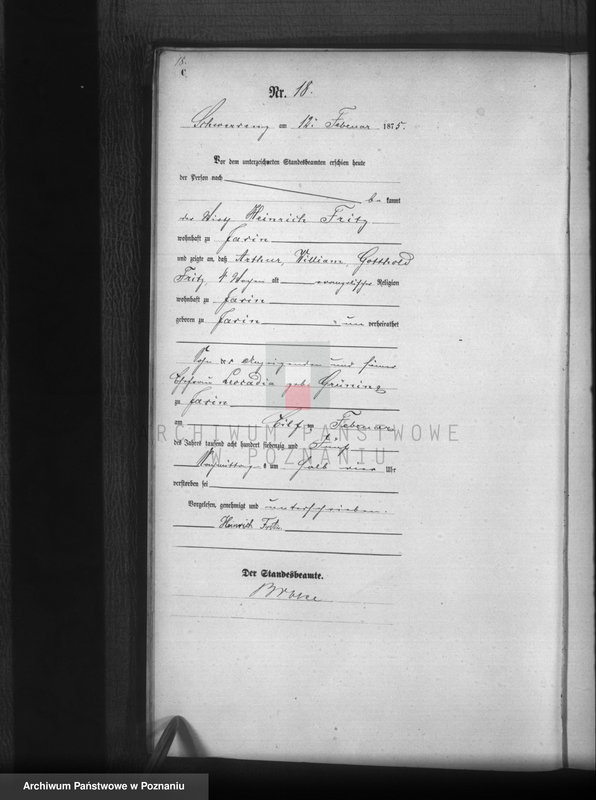 18.
C
Nr. 18.
am 12. Februar 1875.
Vor dem unterzeichneten Standesbeamten erschien heute
der Person nach
be kannt
der Wirth Heinrich Fritz
wohnhaft zu Jarin
und zeigte an, daß Arthur, William, Gotthold
Fritz, 4 Wochen alt evangelischer Religion
wohnhaft zu Jarin
geboren zu Jarin un verheirathet
Sohn des Anzeigenden und seiner
Ehefrau Leocadia geb. Grüning
zu Jarin
am Elften Februar
des Jahrs tausend acht hundert siebenzig und Fünf
Nachmittags um halb vier Uhr
verstorben sei
Vorgelesen, genehmigt und unterschrieben.
Heinrich Fritz
Der Standesbeamte.
ARCHIWUM PAŃSTWOWE
W POZNANIU
Archiwum Państwowe w Poznaniu